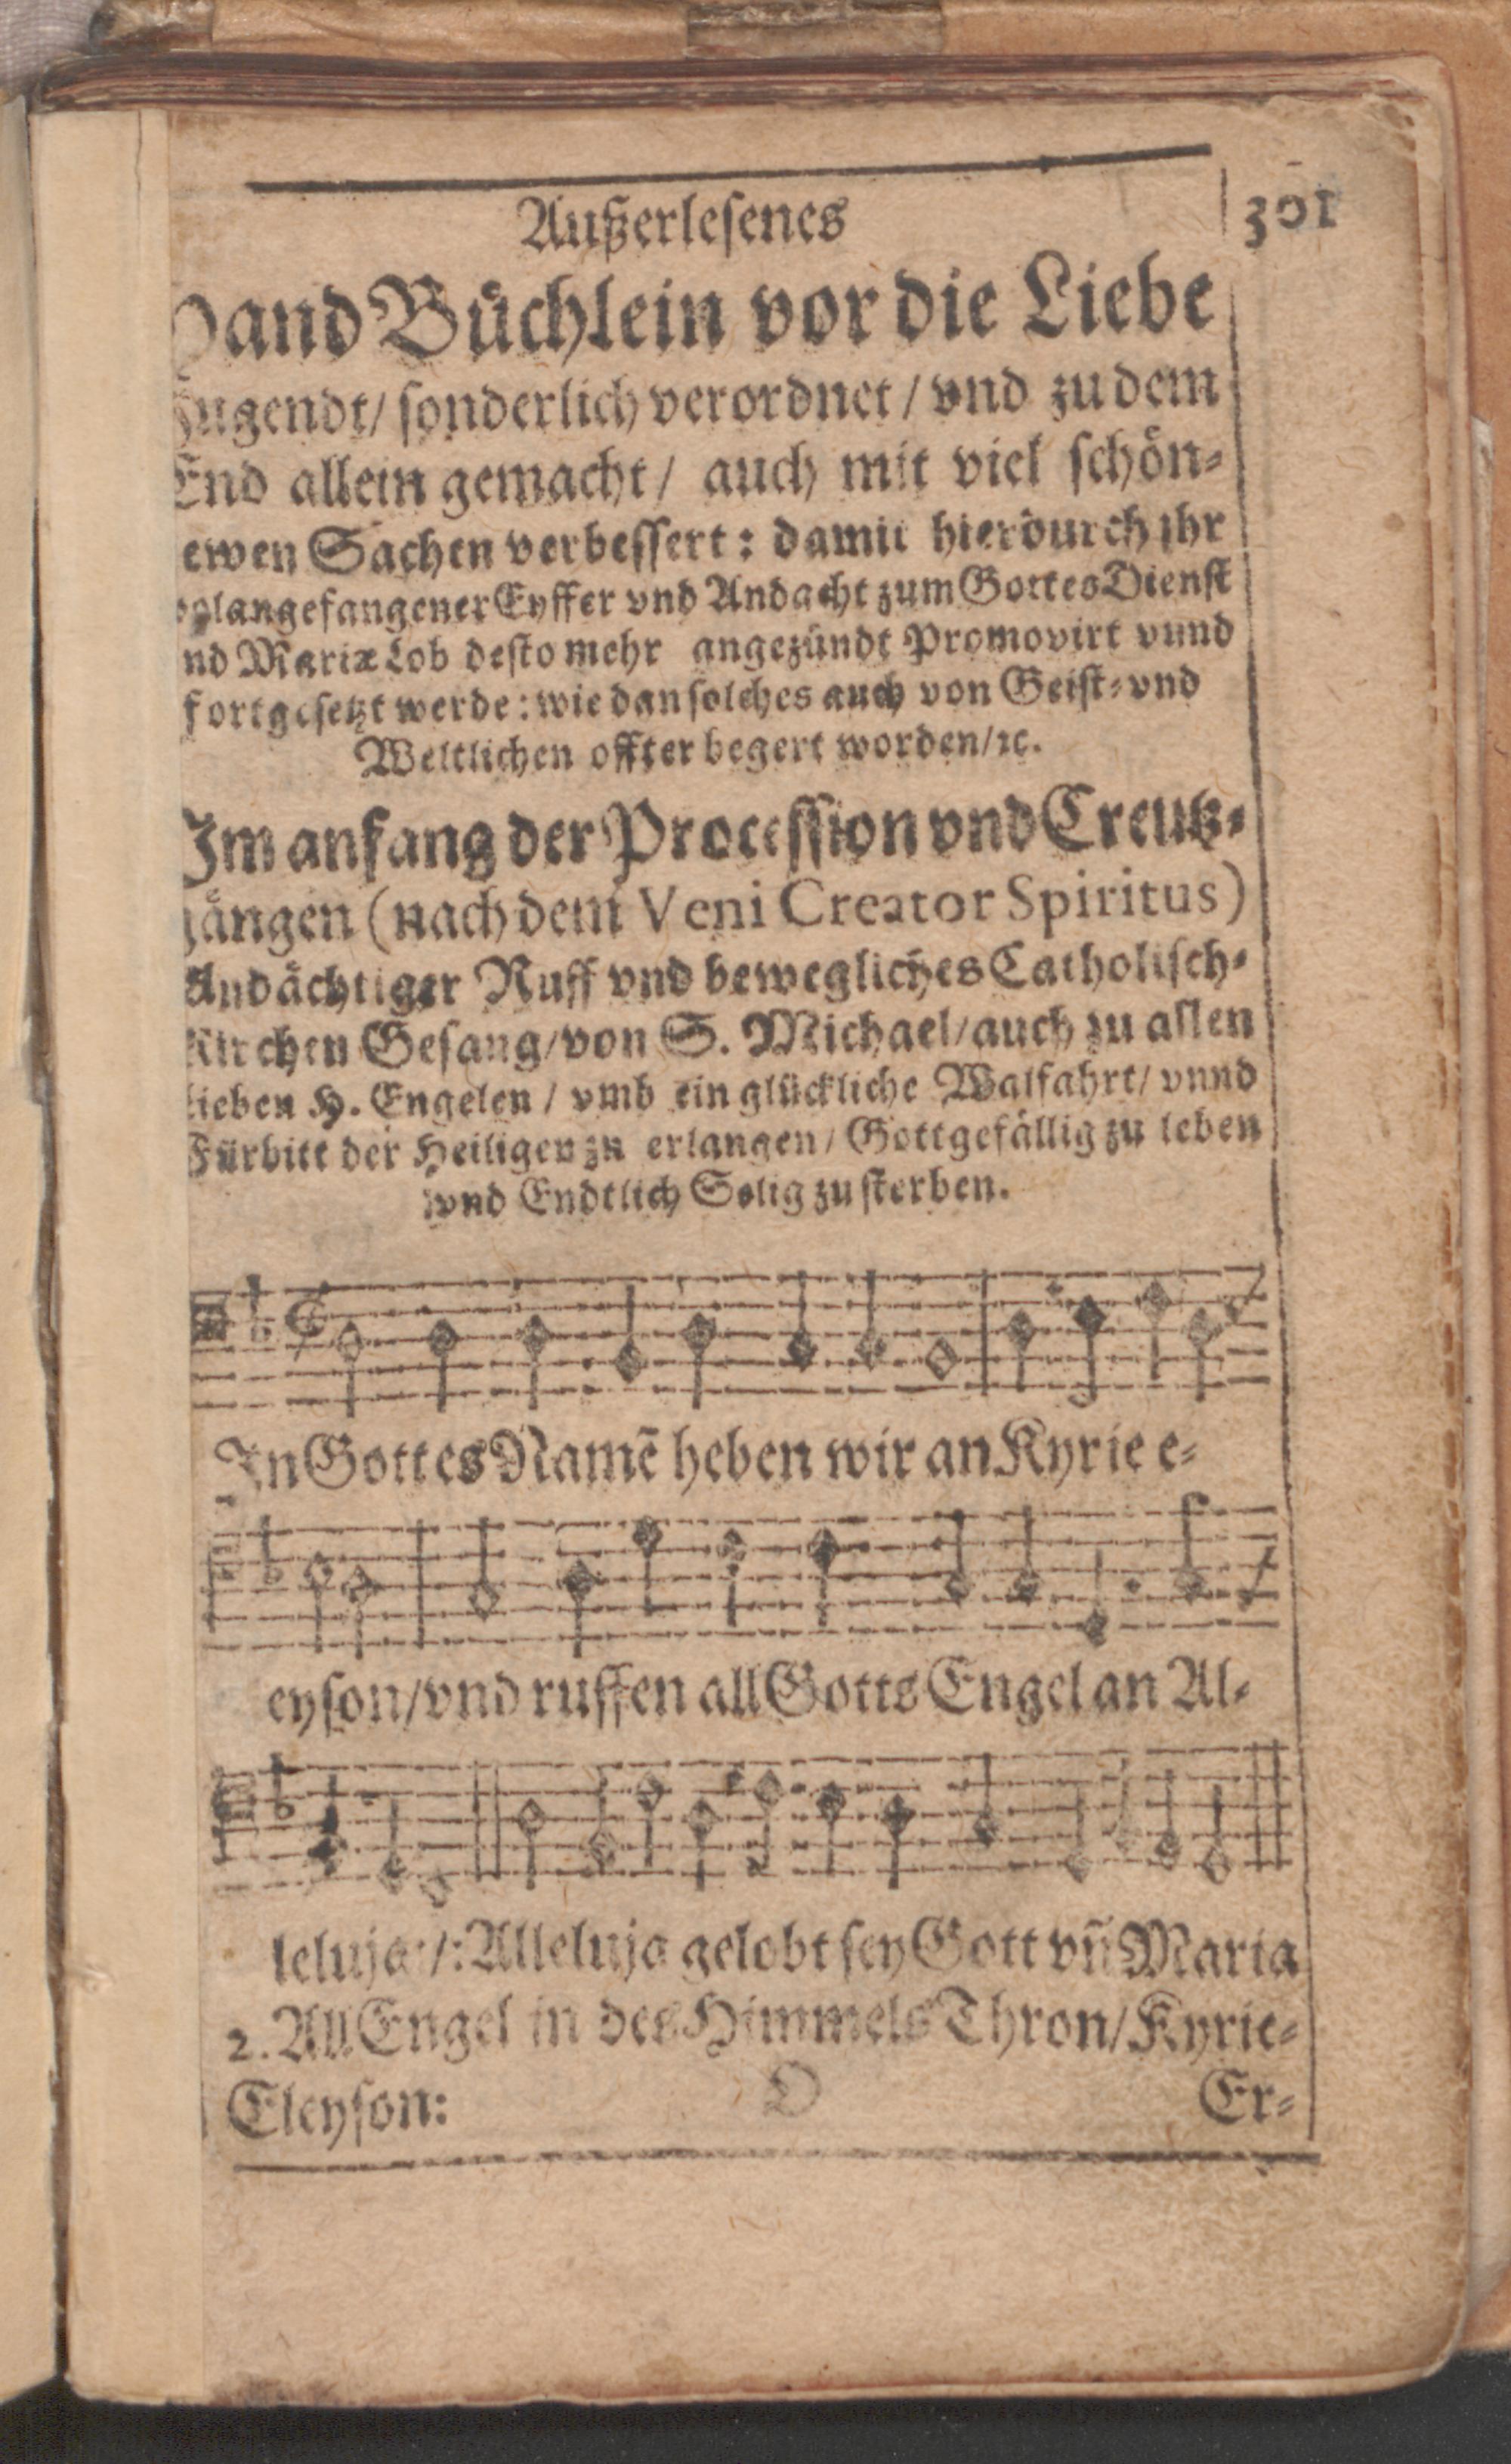 301
Außerleſenes
Hand Büchlein vor die Liebe
Jugendt/ ſonderlich verordnet / vnd zu dem
End allein gemacht / auch mit viel ſchön-
ewen Sachen verbeſſert : damit hierdurch ihr
olangefangener Eyffer vnd Andacht zum Gottes Dienſt
nd Mariæ Lob deſto mehr angezündt Promovirt vnnd
fortgeſetzt werde : wie dan ſolches auch von Geiſt- vnd
Weltlichen offter begert worden/ ꝛc.
Im anfang der Proceſſion vnd Creutz-
gängen (nach dem Veni Creator Spiritus)
Andächtiger Ruff vnd bewegliches Catholiſch-
Kirchen Geſang/ von S. Michael/ auch zu allen
lieben H. Engelen / vmb ein glückliche Walfahrt/ vnnd
Fürbitt der Heiligen zu erlangen / Gottgefällig zu leben
vnd Endtlich Selig zu ſterben.
In Gottes Namẽ heben wir an Kyrie e-
eyſon/ vnd ruffen all Gotts Engel an Al-
leluja :/: Alleluja gelobt ſey Gott vñ Maria
2. All Engel in des Himmels Thron/ Kyrie-
Eleyſon:
O
Er-